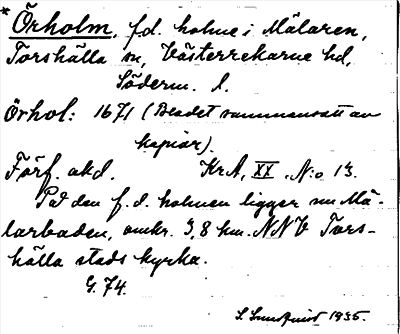 * Örholm, f.d. holme i Mälaren,
Torshälla sn, Västerrekarne hd,
Söderm. l.
Örhol: 1671 (Bladet sammansatt av
kopior).
Förf. akd. KrA, XX. N:o 13.
På den f.d. holmen ligger nu Mä-
larbaden, omkr. 3,8 km. NNV Tors-
hälla stads kyrka.
G. 74.
S. Sundqvist 1935.